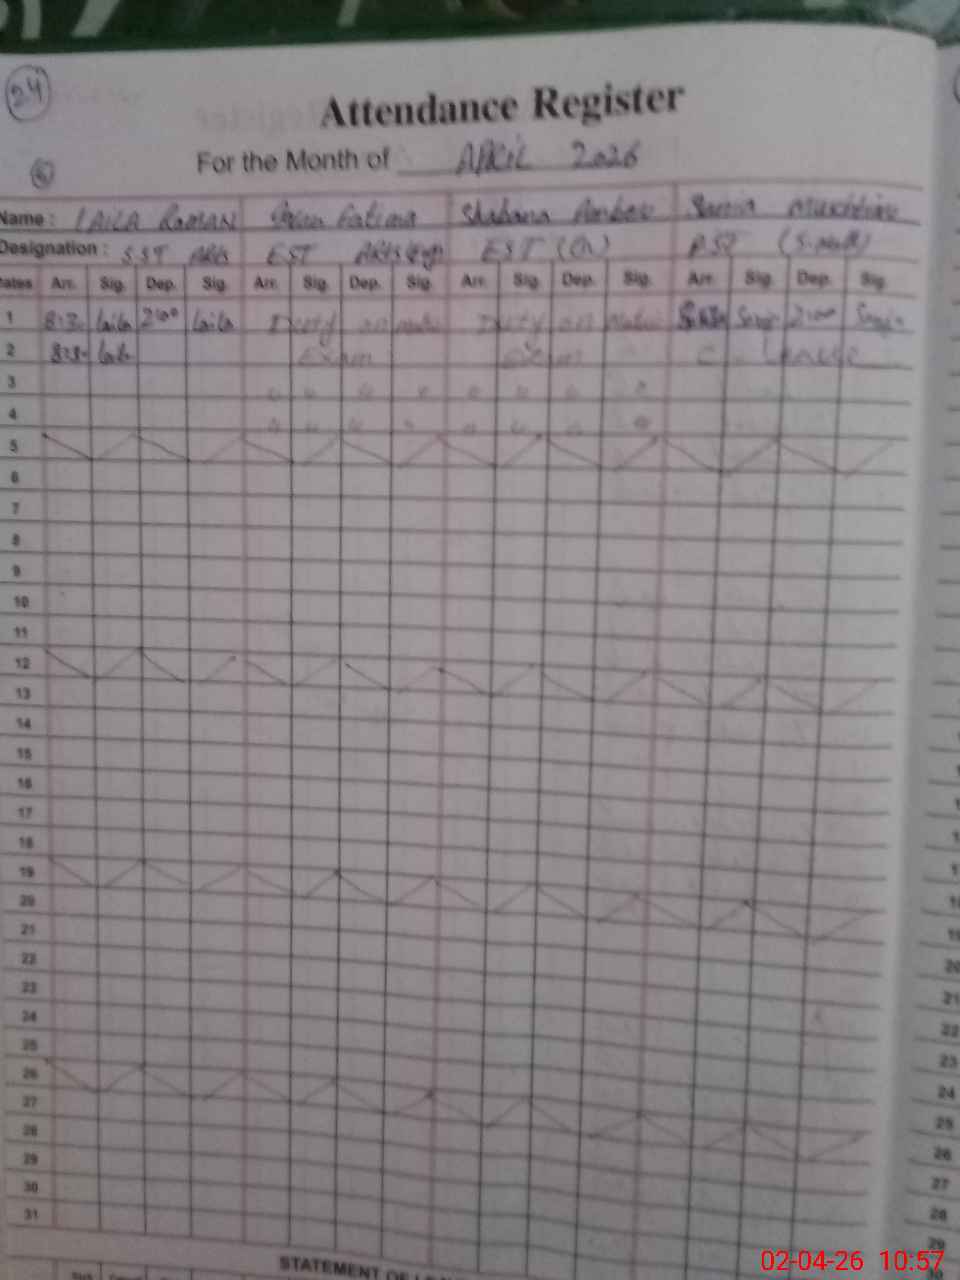 24
Attendance Register
For the Month of APRIL 2026
6
Name : LAILA RAMAN Fatima Shabana Amber Samia
Designation : SST Arts EST Arts EST (Ch) PST
Dates Arr. Sig. Dep. Sig. Arr. Sig. Dep. Sig. Arr. Sig. Dep. Sig. Arr. Sig. Dep. Sig.
1 8:30 laila 2:00 laila Duty on Matric Duty on Matric 8:30 Samia 2:00 Samia
2 8:30 laila Exam Exam C. Leave
3 " " " " " " " "
4 " " " " " " " "
5
6
7
8
9
10
11
12
13
14
15
16
17
18
19
20
21
22
23
24
25
26
27
28
29
30
31
STATEMENT OF
18
19
20
21
22
23
24
25
26
27
28
29
30
02-04-26 10:57